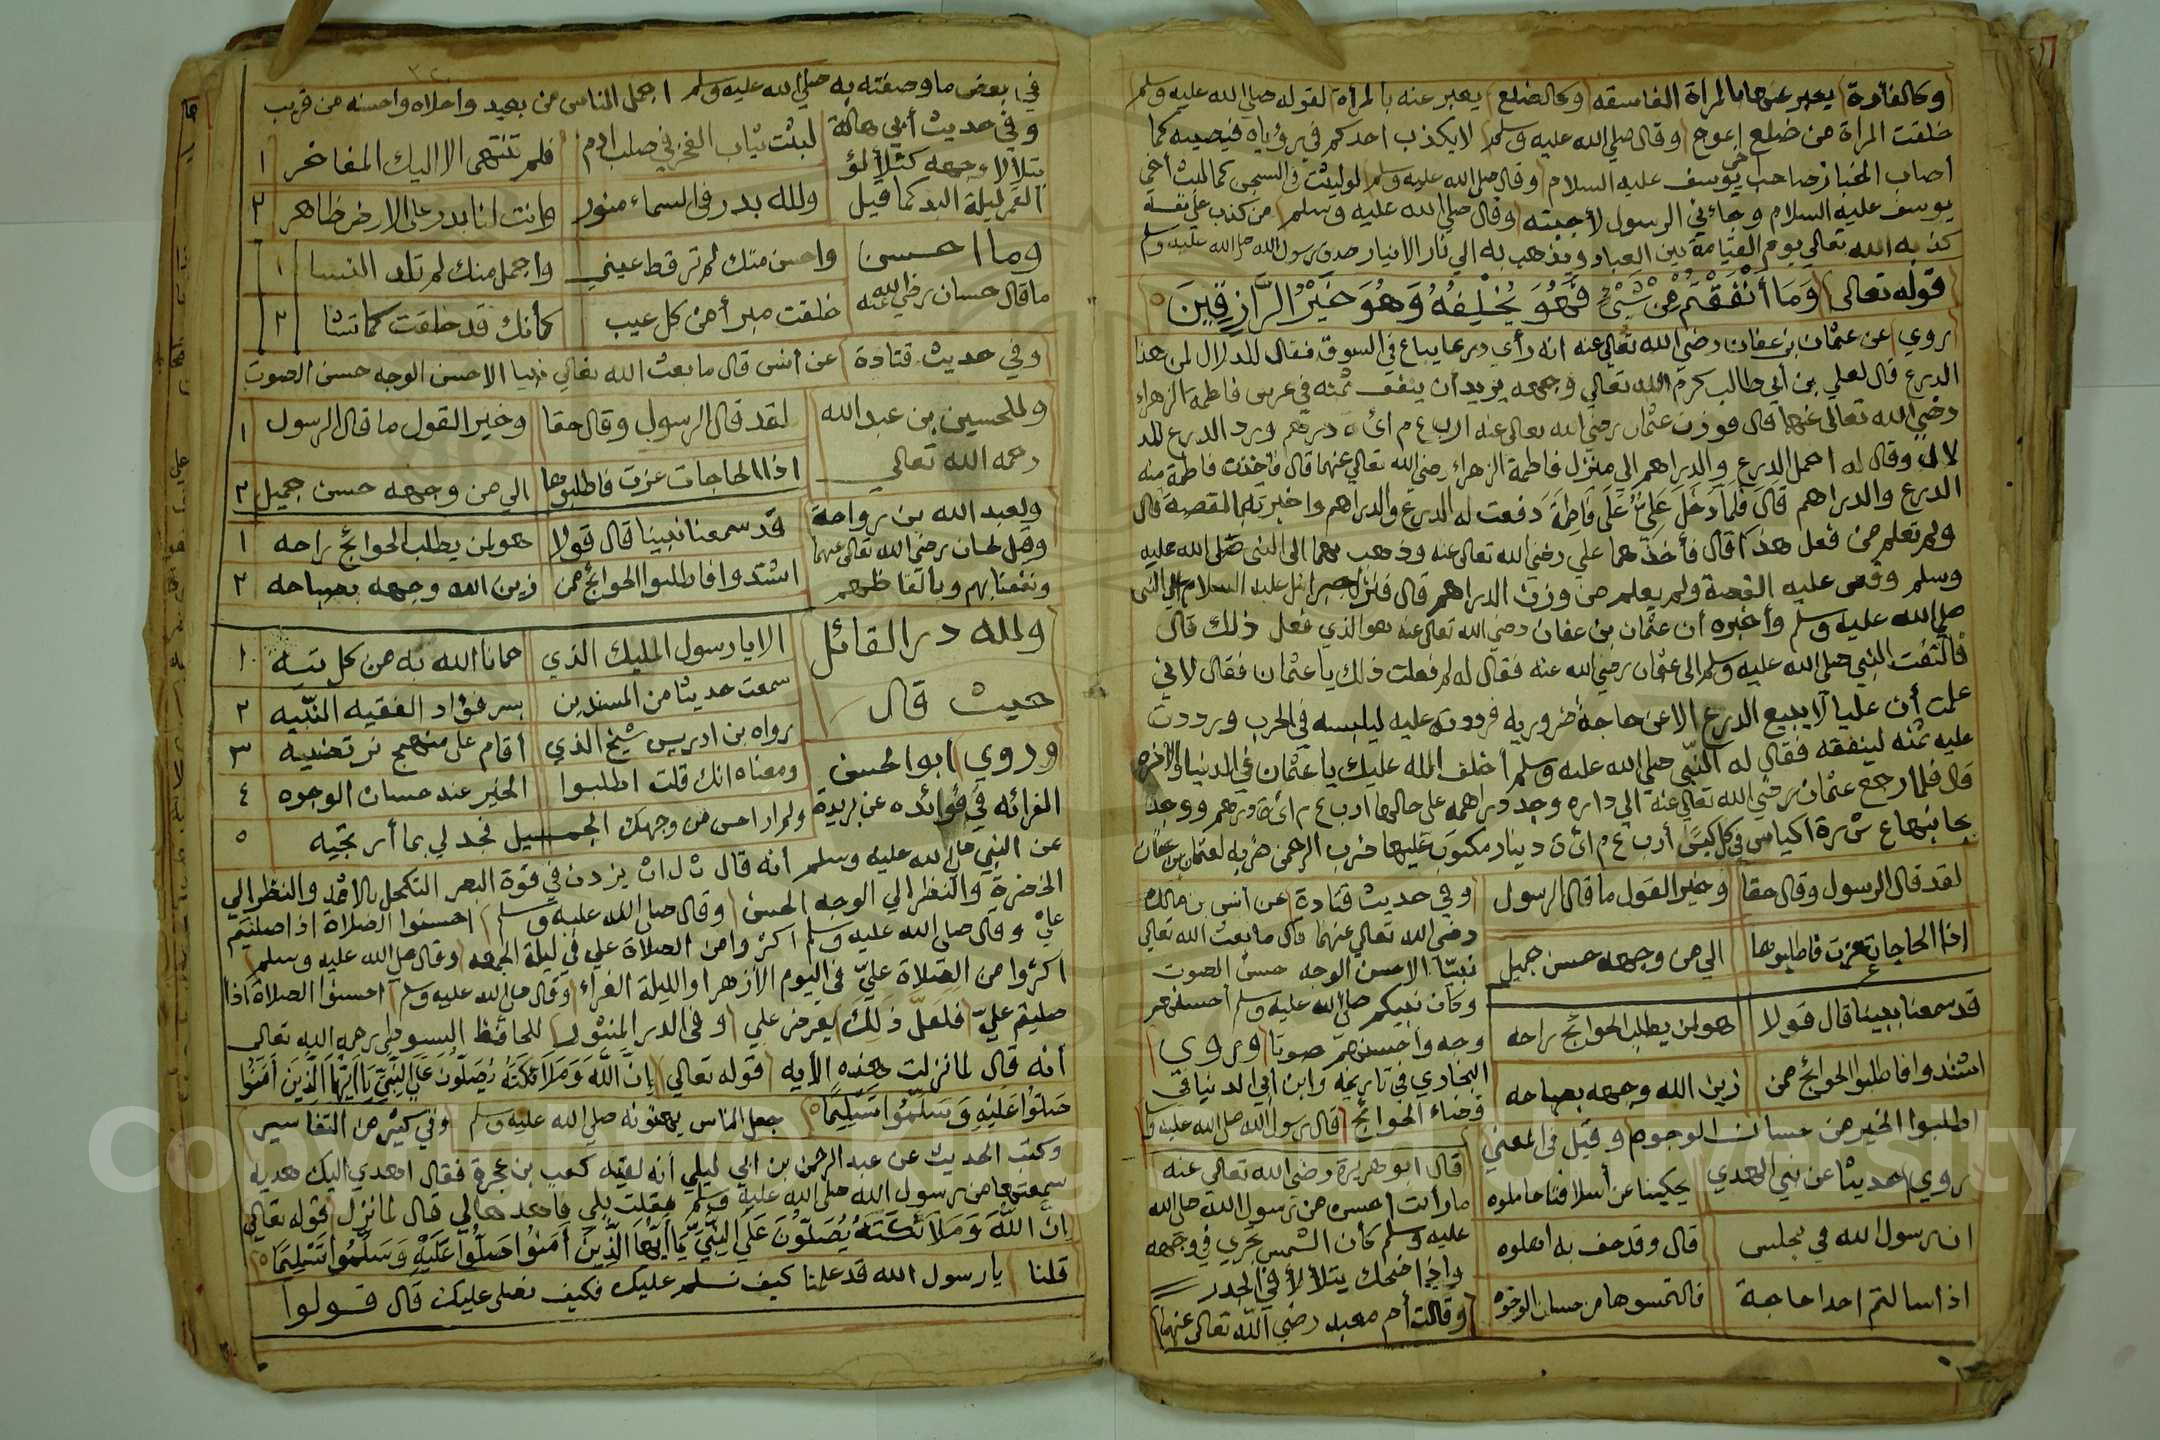 وكالفأرة يعبر عنها بالمرأة الفاسقه وكالضلع يعبر عنه بالمرأة لقوله صلي الله عليه وسلم
خلقت المرأة من ضلع اعوج وقال صلي الله عليه وسلم لا يكذب احدكم في رؤياه فيصيبه كما
أصاب الخباز صاحب يوسف عليه السلام وقال صلي الله عليه وسلم لو لبثت في السجن كما لبث أخي
يوسف عليه السلام وجاءني الرسول لأجبته وقال صلي الله عليه وسلم من كذب علي نفسه
كذبه الله تعالي يوم القيامة بين العباد ويذهب به الي نار الانيار صدق رسول الله صلي الله عليه وسلم
قوله تعالى وَمَا أَنْفَقْتُمْ مِنْ شَيْءٍ فَهُوَ يُخْلِفُهُ وَهُوَ خَيْرُ الرَّازِقِينَ
روي عن عثمان بن عفان رضي الله تعالي عنه انه رأي درعا يباع في السوق فقال للدلال لمن هذا
الدرع قال لعلي بن أبي طالب كرم الله تعالي وجهه يريد أن ينفق ثمنه في عرس فاطمة الزهراء
رضي الله تعالى عنها قال فوزن عثمان رضي الله تعالى عنه ارب ع م ائ ة درهم ورد الدرع للد
لال وقال له احمل الدرع والدراهم الي منزل فاطمة الزهراء رضي الله تعالي عنها قال فأخذت فاطمة منه
الدرع والدراهم قال فلما دخل عليٌّ على فاطمة دفعت له الدرع والدراهم واخبرته القصة قال
ولم تعلم من فعل هذا قال فأخذهما علي رضي الله تعالى عنه وذهب بهما الى النبي صلى الله عليه
وسلم وقص عليه القصة ولم يعلم من وزن الدراهم قال فنزل جبرائيل عليه السلام علي النبي
صلي الله عليه وسلم وأخبره أن عثمان بن عفان رضي الله تعالى عنه هو الذي فعل ذلك قال
فالتفت النبي صلي الله عليه وسلم الى عثمان رضي الله عنه فقال له لم فعلت ذلك يا عثمان فقال لاني
علمت أن عليا لا يبيع الدرع الا عن حاجة ضروريه فرددت عليه ليلبسه في الحرب ورددت
عليه ثمنه لينفقه فقال له النبي صلي الله عليه وسلم أخلف الله عليك يا عثمان في الدنيا والآخره
قال فلما رجع عثمان رضي الله تعالى عنه الي داره وجد دراهمه على حالها ارب ع م ائ ة درهم ووجد
بجانبها ع ش رة اكياس في كل كيس أرب ع م ائ ة دينار مكتوب عليها ضرب الرحمن ضربه لعثمان بن عفان
لقد قال الرسول وقال حقا وخير القول ما قال الرسول
إذا الحاجات عزت فاطلبوها الي من وجهه حسن جميل
قد سمعنا نبينا قال قولا هو لمن يطلب الحوائج راحه
اشتدوا فاطلبوا الحوائج ممن زين الله وجهه بصباحه
اطلبوا الخير من حسان الوجوه وقيل في المعني
روي حديثا عن نبي الهدي يحكينا عن أسلافنا حاملوه
ان رسول الله في مجلس قال وقد حف به اهلوه
اذا سالتم احدا حاجة فالتمسوها من حسان الوجوه
وفي حديث قتادة عن أنس بن مالك
رضي الله تعالي عنهما قال ما بعث الله تعالي
نبيّا الا حسن الوجه حسن الصوت
وكان نبيكم صلي الله عليه وسلم أحسنهم
وجه وأحسنهم صوتا وروي
البخاري في تاريخه وابن ابي الدنيا في
قضاء الحوائج قال رسول الله صلي الله عليه وسلم
قال ابو هريرة رضي الله تعالي عنه
ما رأيت احسن من رسول الله صلي الله
عليه وسلم كأن الشمس تجري في وجهه
واذا ضحك يتلألأ في الجدر
وقالت أم معبد رضي الله تعالي عنها
في بعض ما وصفته به صلي الله عليه وسلم اجمل الناس من بعيد واحلاه واحسنه من قريب
وفي حديث أبي هالة
يتلألأ وجهه كتلألؤ
القمر ليلة البدر كما قيل
لبثت ثياب الفخر في صلب آدم فلم تنتهى الا اليك المفاخر ١
ولله بدر في السماء منور وانت لنا بدر على الارض ظاهر ٢
وما احسن
ما قال حسان رضي الله عنه
واحسن منك لم تر قط عيني واجمل منك لم تلد النسا ١
خلقت مبرأ من كل عيب كأنك قد خلقت كما تشا ٢
وفي حديث قتادة عن أنس قال ما بعث الله تعالي نبيا الا حسن الوجه حسن الصوت
وللحسين بن عبد الله
رحمه الله تعالي
لقد قال الرسول وقال حقا وخير القول ما قال الرسول ١
اذا الحاجات عزت فاطلبوها الى من وجهه حسن جميل ٢
ولعبد الله بن رواحة
وقيل لحسان رضي الله تعالى عنهما
ونفعنا بهم وبالفاظهم
قد سمعنا نبينا قال قولا هو لمن يطلب الحوائج راحه ١
اشتدوا فاطلبوا الحوائج ممن زين الله وجهه بصباحه ٢
ولله در القائل
حيث قال
الا يا رسول المليك الذي حمانا الله به من كل تيه ١
سمعت حديثا من المسندين يسر فؤاد الفقيه النبّيه ٢
رواه بن ادريس شيخ الذي أقام على منهج نرتضيه ٣
ومعناه انك قلت اطلبوا الخير عند حسان الوجوه ٤
ولم ار احسن من وجهك الجميل فجد لي بما أرتجيه ٥
وروي ابو الحسن
الفرائه في فوائده عن بريدة
عن النبي صلي الله عليه وسلم أنه قال ث ل اث يزدن في قوة البصر التكحل بالاثمد والنظر الي
الخضرة والنظر الي الوجه الحسن وقال صلى الله عليه وسلم احسنوا الصلاة اذا صليتم
عليّ وقال صلي الله عليه وسلم اكثروا من الصلاة علي في ليلة الجمعه وقال صلي الله عليه وسلم
اكثروا من الصلاة عليّ في اليوم الأزهر او الليلة الغراء وقال صلي الله عليه وسلم احسنوا الصلاة اذا
صليتم عليّ فلعل ذلك يعرض علي وفي الدر المنثور للحافظ السيوطي رحمه الله تعالى
أنه قال لما نزلت هذه الأيه قوله تعالي إِنَّ اللَّهَ وَمَلَائِكَتَهُ يُصَلُّونَ عَلَي النَّبِيِّ يَا أَيُّهَا الَّذِينَ أَمَنُوا
صَلُّوا عَلَيْهِ وَسَلِّمُوا تَسْلِيمًا جعل الناس يهنونه صلي الله عليه وسلم وفي كثير من التفاسير
وكتب الحديث عن عبد الرحمن بن ابي ليلي أنه لقيه كعب بن عجرة فقال اهدي اليك هدية
سمعتها من رسول الله صلى الله عليه وسلم فقلت بلي فأهدها لي قال لما نزل قوله تعالي
إِنَّ اللَّهَ وَمَلَائِكَتَهُ يُصَلُّونَ عَلَي النَّبِيِّ يَا أَيُّهَا الَّذِينَ أَمَنُوا صَلُّوا عَلَيْهِ وَسَلِّمُوا تَسْلِيمًا
قلنا يا رسول الله قد علمنا كيف نسلم عليك فكيف نصلى عليك قال قولوا
Copyright © King Saud University